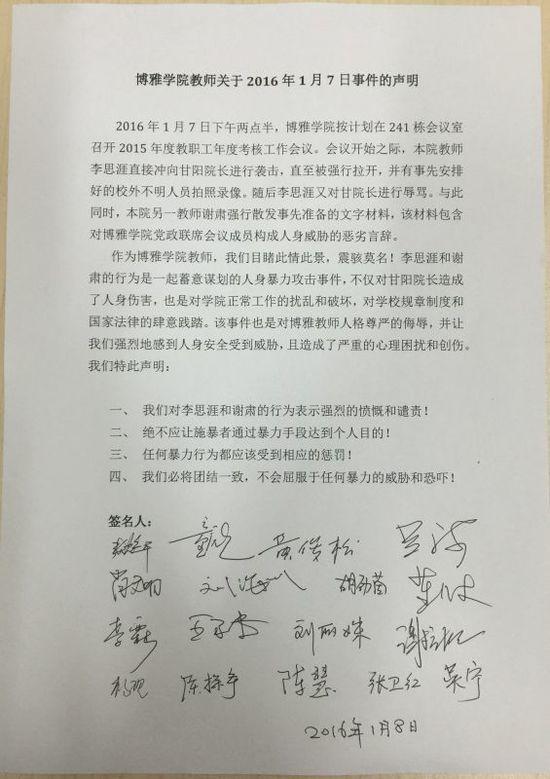 博雅学院教师关于 2016 年 1 月 7 日事件的声明
2016 年 1 月 7 日下午两点半，博雅学院按计划在 241 栋会议室
召开 2015 年度教职工年度考核工作会议。会议开始之际，本院教师
李思涯直接冲向甘阳院长进行袭击，直至被强行拉开，并有事先安排
好的校外不明人员拍照录像。随后李思涯又对甘院长进行辱骂。与此
同时，本院另一教师谢肃强行散发事先准备的文字材料，该材料包含
对博雅学院党政联席会议成员构成人身威胁的恶劣言辞。
作为博雅学院教师，我们目睹此情此景，震骇莫名！李思涯和谢
肃的行为是一起蓄意谋划的人身暴力攻击事件，不仅对甘阳院长造成
了人身伤害，也是对学院正常工作的扰乱和破坏，对学校规章制度和
国家法律的肆意践踏。该事件也是对博雅教师人格尊严的侮辱，并让
我们强烈地感到人身安全受到威胁，且造成了严重的心理困扰和创伤。
我们特此声明：
一、 我们对李思涯和谢肃的行为表示强烈的愤慨和谴责！
二、 绝不应让施暴者通过暴力手段达到个人目的！
三、 任何暴力行为都应该受到相应的惩罚！
四、 我们必将团结一致，不会屈服于任何暴力的威胁和恐吓！
签名人：
黄俊松 吕海
肖文明 胡劲茵 董波
李霖 刘丽姝
陈慧 张卫红 吴宁
2016年1月8日